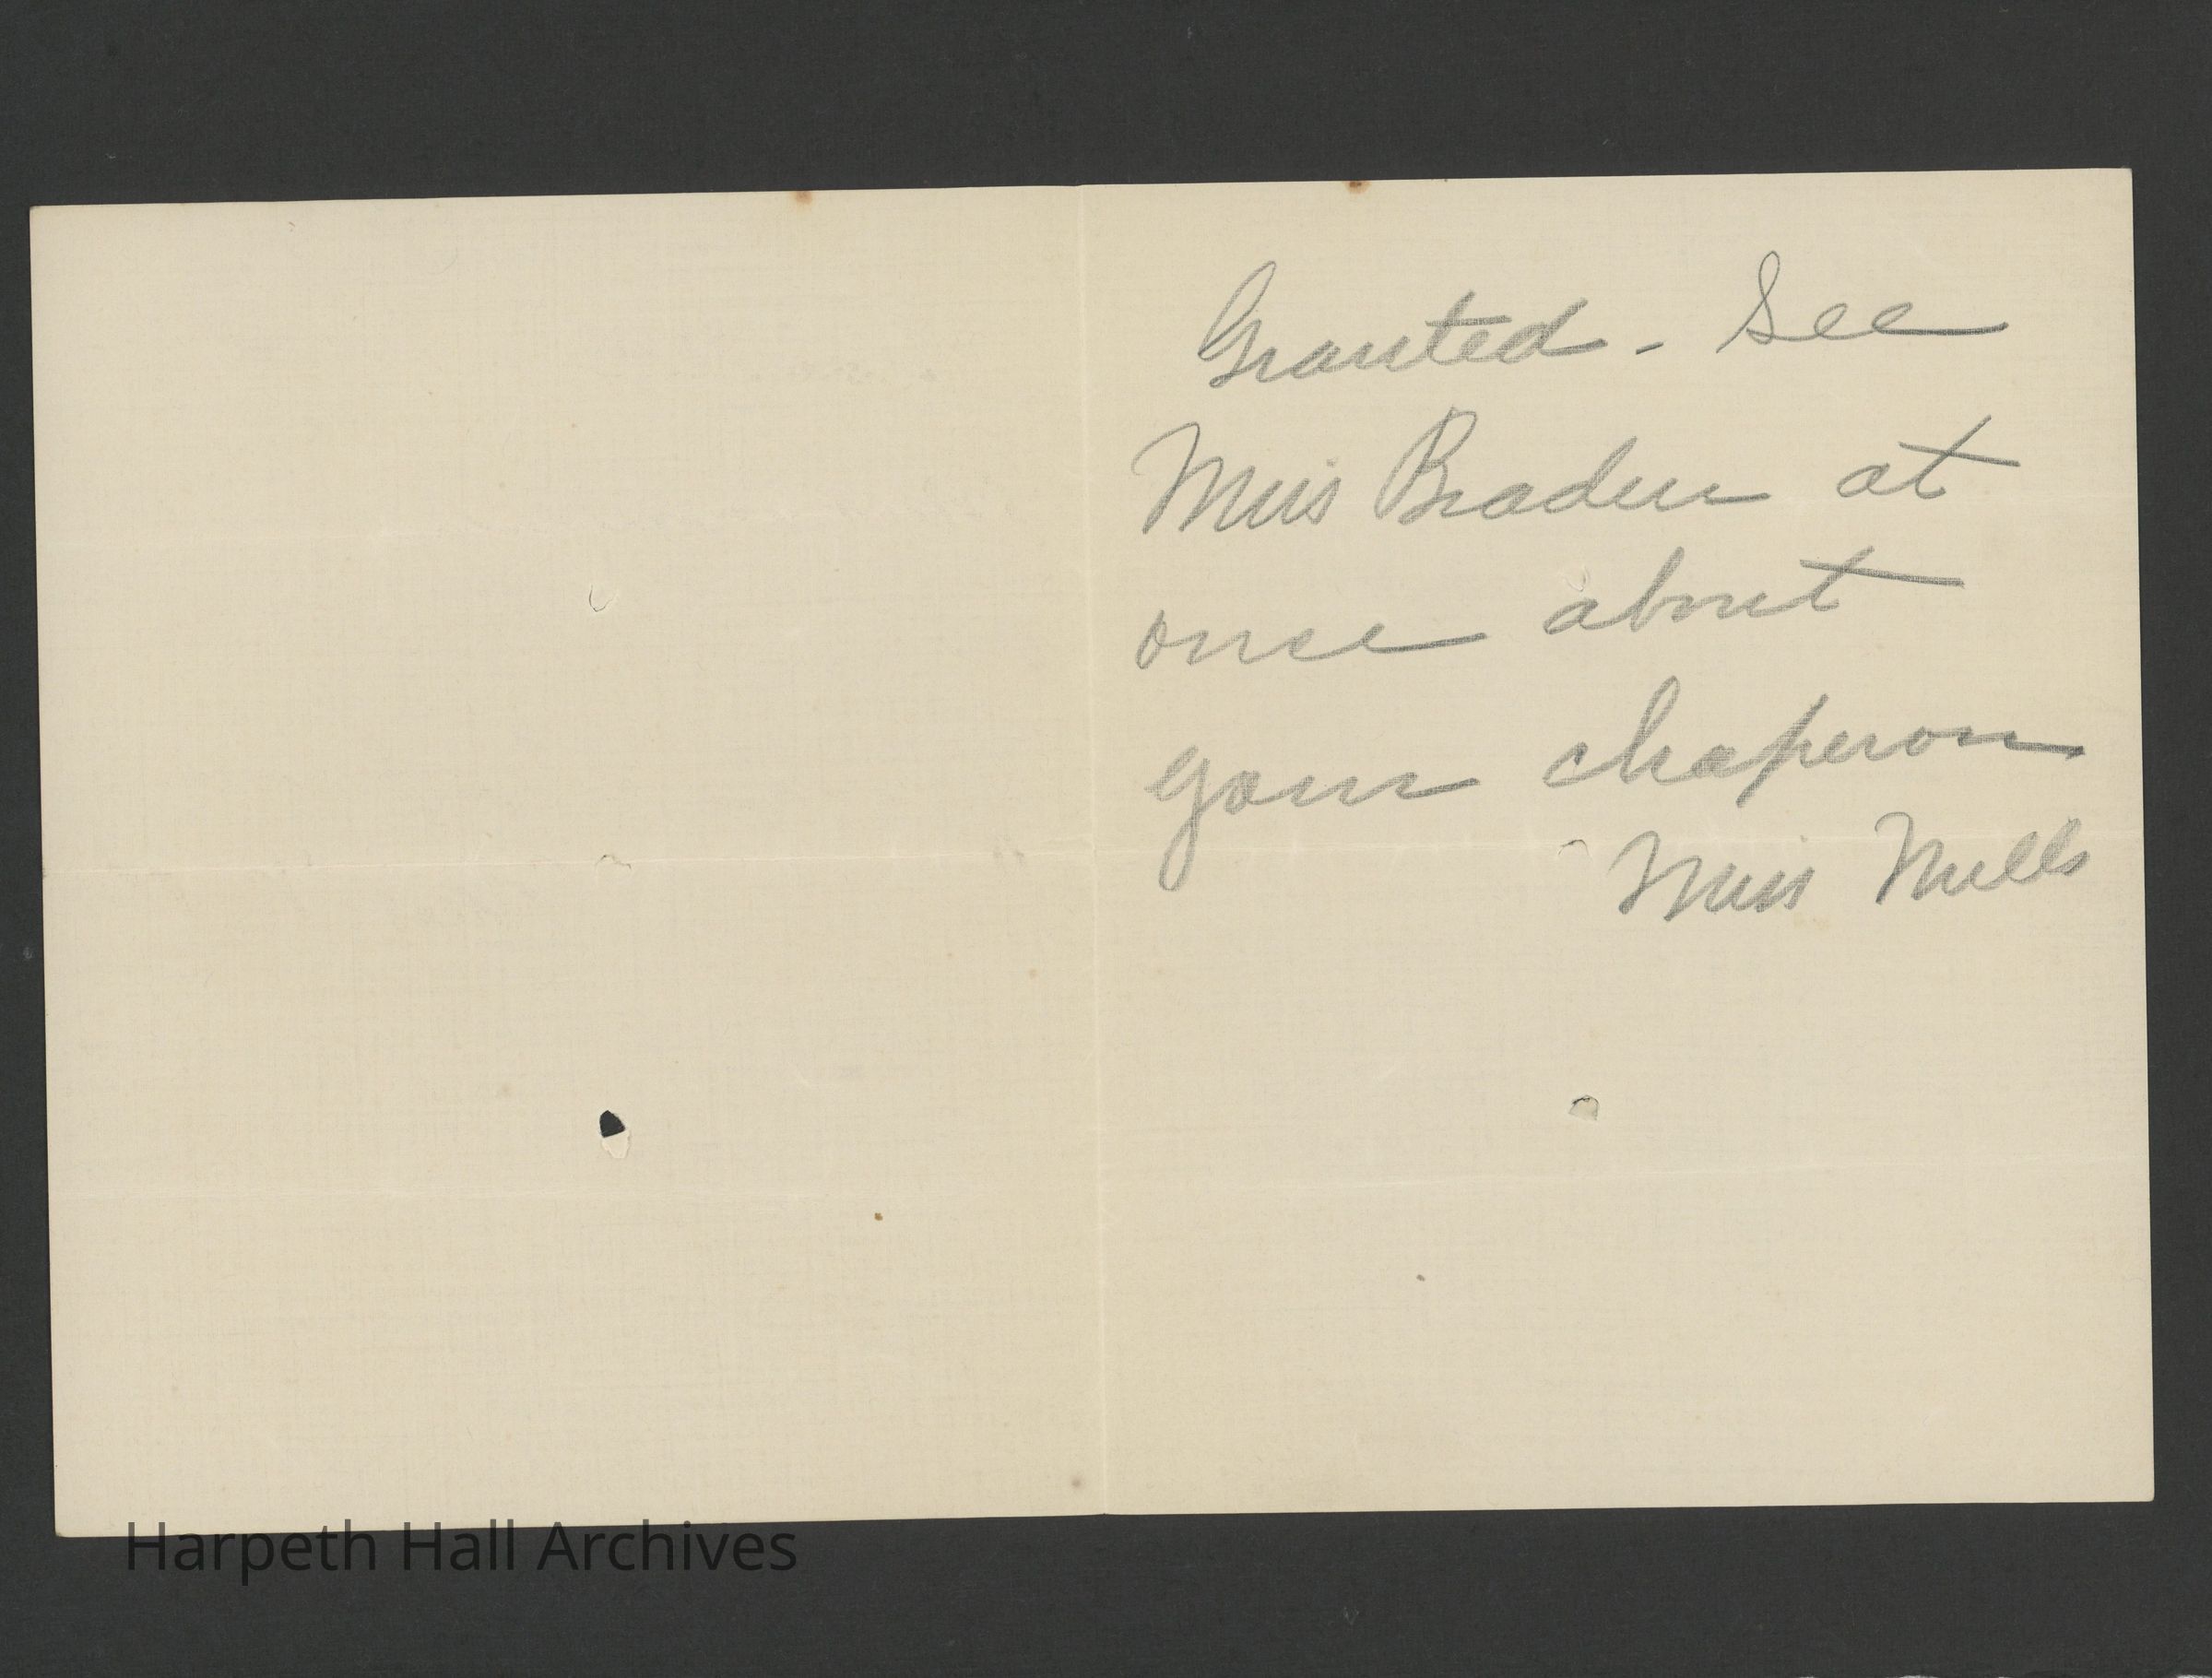 Granted - See
Miss Braden at
once about
your chaperon
Miss Mills
Harpeth Hall Archives